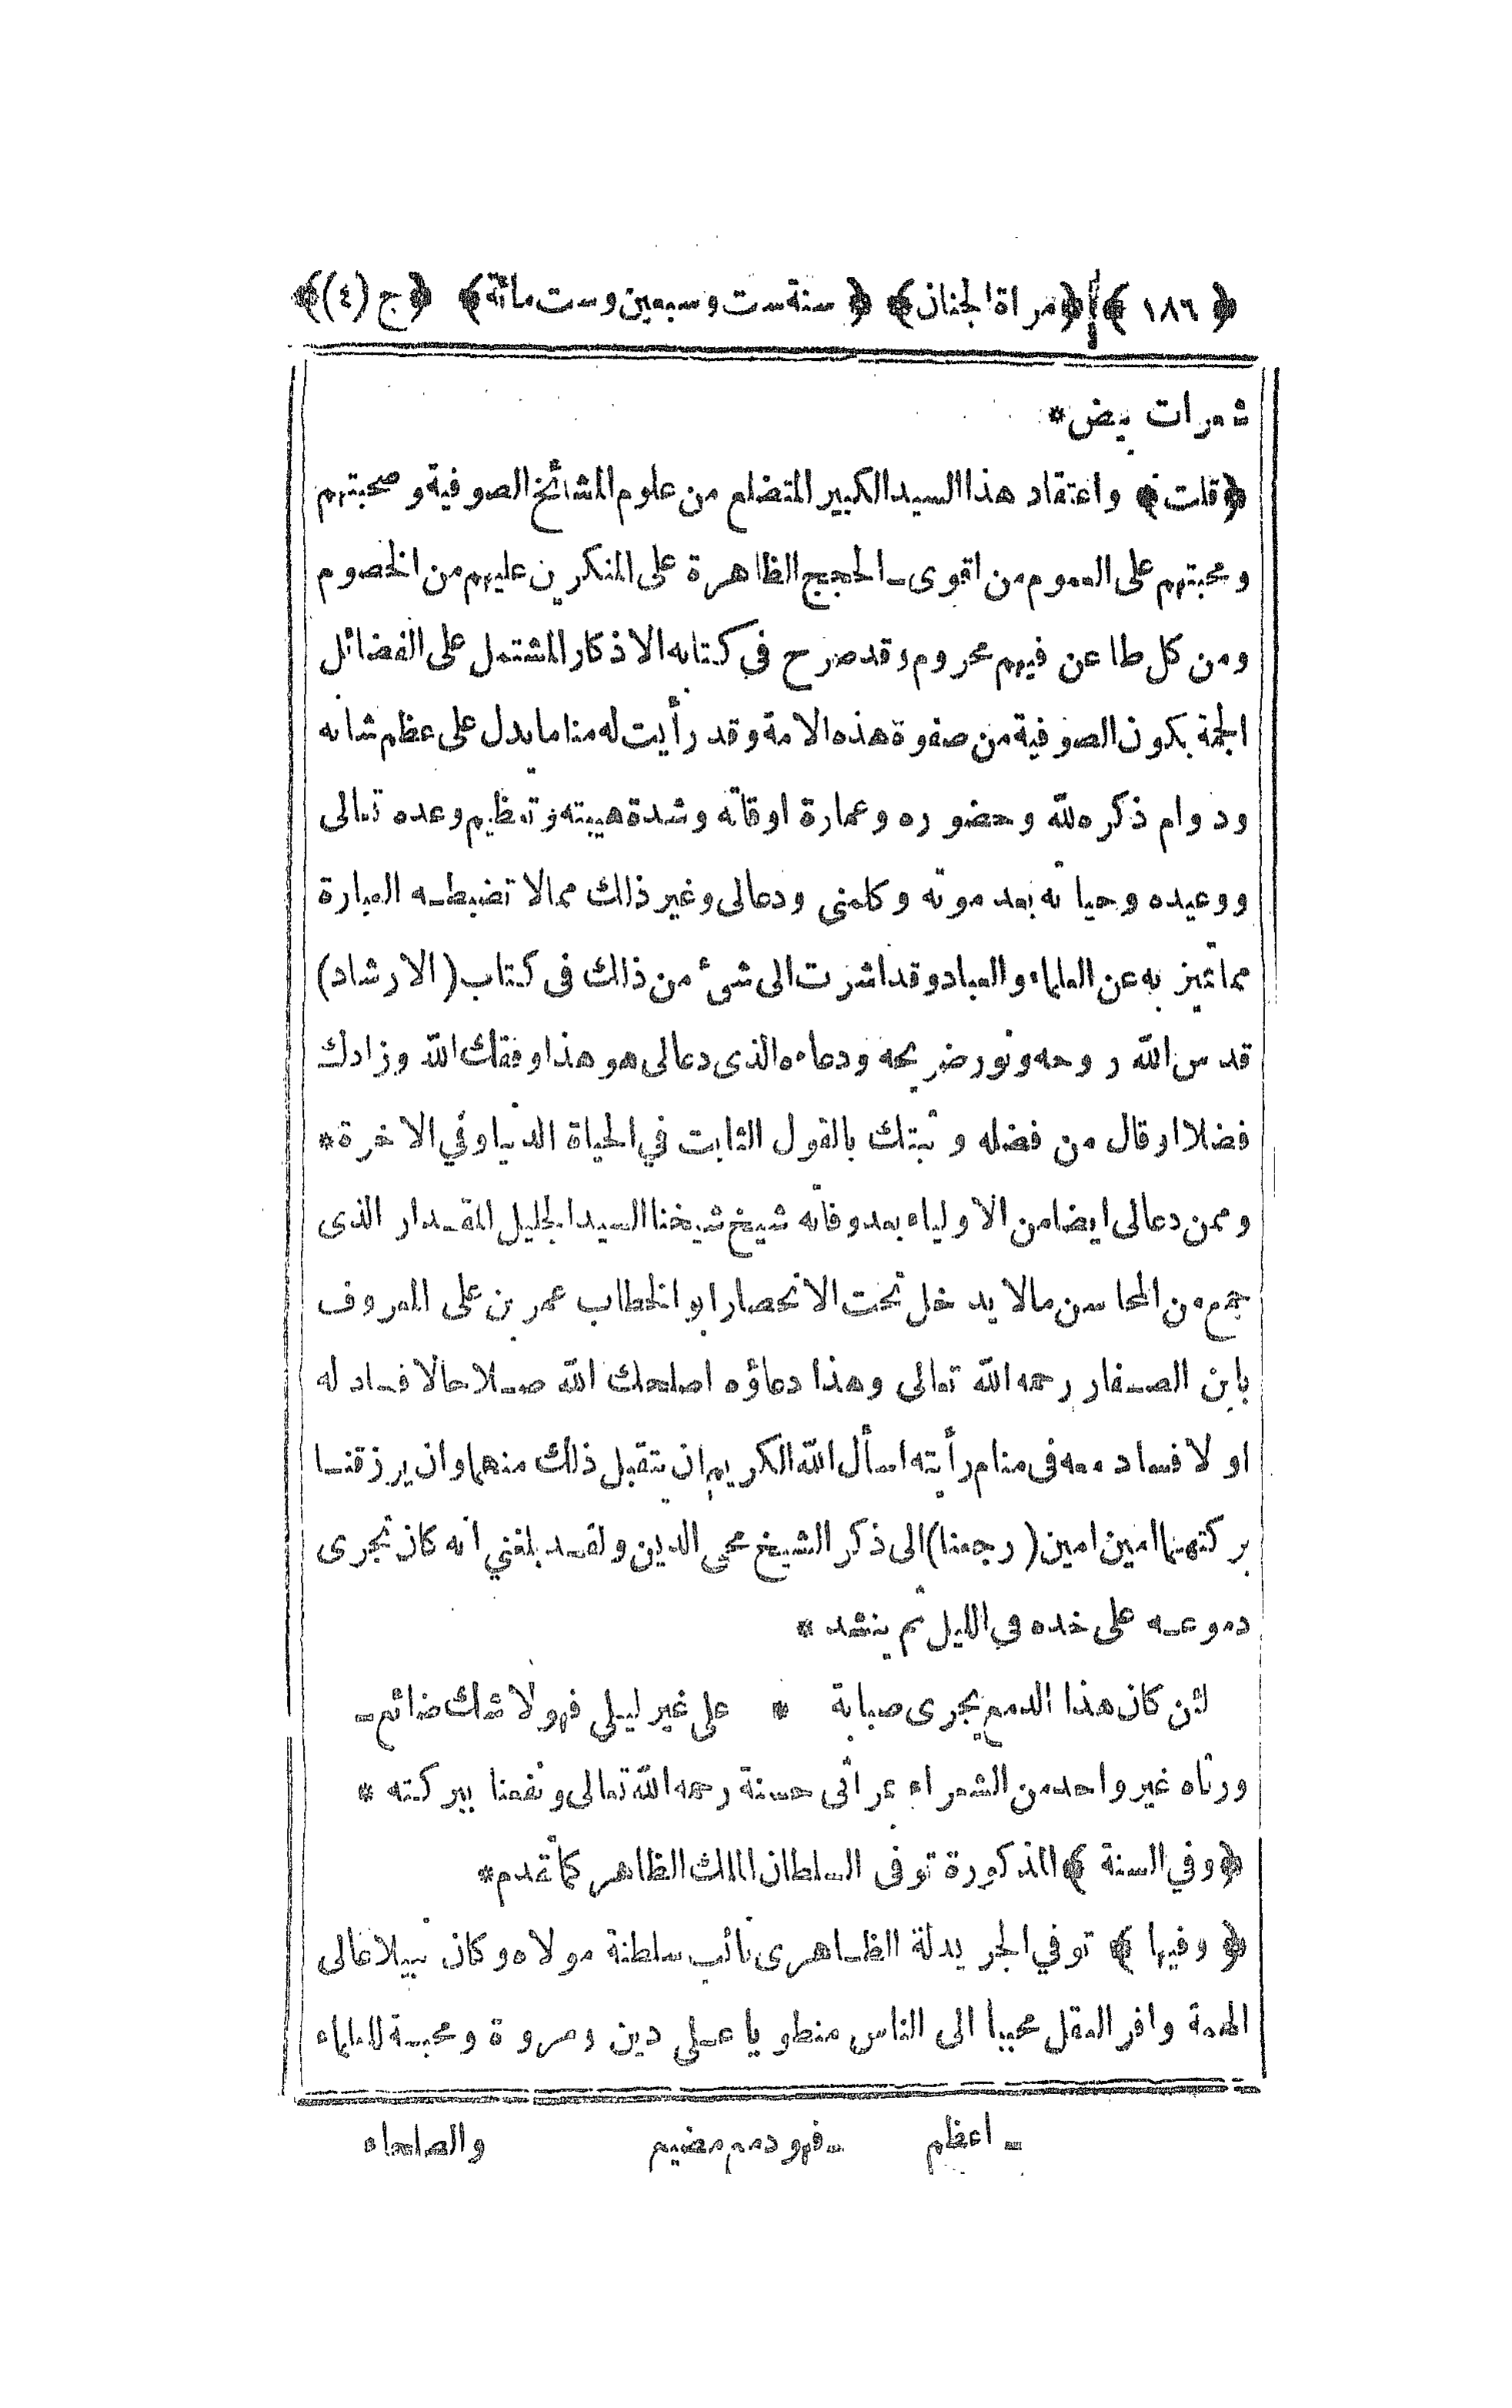 ﴿ ١٨٦ ﴾ ﴿مرآة الجنان﴾ ﴿سنة ست وسبعين وست مائة﴾ ﴿ج (٤)﴾
شعرات بيض*
﴿قلت﴾ واعتقاد هذا السيد الكبير المتضلع من علوم المشائخ الصوفية وصحبتهم
ومحبتهم على العموم من اقوى الحجج الظاهرة على المنكرين عليهم من الخصوم
ومن كل طاعن فيهم محروم وقد صرح في كتابه الاذكار المشتمل على الفضائل
الجمة بكون الصوفية من صفوة هذه الامة وقد رأيت له مناما يدل على عظم شانه
ودوام ذكره لله وحضوره وعمارة اوقاته وشدة هيبته وتعظيم وعده تعالى
ووعيده وحياته بعد موته وكلمنى ودعالى وغير ذلك مما لا تضبطه العبارة
مما تميز به عن العلماء والعباد وقد اشرت الى شئ من ذلك فى كتاب (الارشاد)
قدس الله روحه ونور ضريحه ودعاءه الذى دعالى هو هذا وفقك الله وزادك
فضلا او قال من فضله وثبتك بالقول الثابت في الحياة الدنيا وفي الاخرة*
وممن دعالى ايضا من الاولياء بعد وفاته شيخ شيخنا السيد الجليل المقدار الذى
جمع من المحاسن مالا يدخل تحت الانحصار ابو الخطاب عمر بن على المعروف
بابن الصفار رحمه الله تعالى وهذا دعاؤه اصلحك الله صلاحا لا فساد له
او لا فساد معه فى منام رأيته اسأل الله الكريم ان يتقبل ذلك منهما وان يرزقنا
بركتهما امين امين (رجعنا) الى ذكر الشيخ محى الدين ولقد بلغني انه كان تجرى
دموعه على خده في الليل ثم ينشد *
لئن كان هذا الدمع يجرى صبابة * على غير ليلى فهو لا شك ضائع ـ
ورثاه غير واحد من الشعراء بمراثى حسنة رحمه الله تعالى ونفعنا ببركته *
﴿وفي السنة﴾ المذكورة توفى السلطان الملك الظاهر كما تقدم*
﴿وفيها﴾ توفي الجريدلة الظاهرى نائب سلطنة مولاه وكان نبيلا عالى
الهمة وافر العقل محببا الى الناس منطويا على دين ومروة ومحبة للعلماء
ـ اعظم ـ فهو دمع مضيع والصلحاء